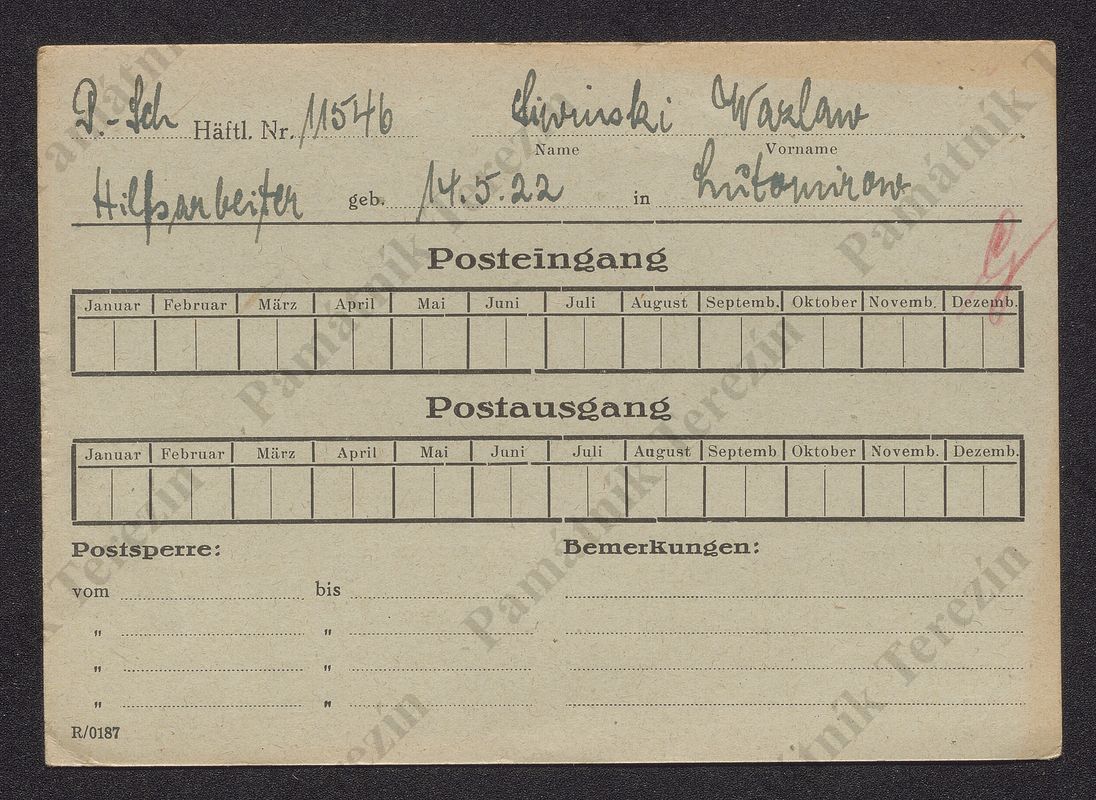 P.-Sch Häftl. Nr. 11546 Siwinski Wazlaw
Name Vorname
Hilfsarbeiter geb. 14.5.22 in Lutomirow
Posteingang
Januar Februar März April Mai Juni Juli August Septemb. Oktober Novemb. Dezemb.
Postausgang
Januar Februar März April Mai Juni Juli August Septemb. Oktober Novemb. Dezemb.
Postsperre: Bemerkungen:
vom bis
" "
" "
" "
R/0187
Památník Terezín